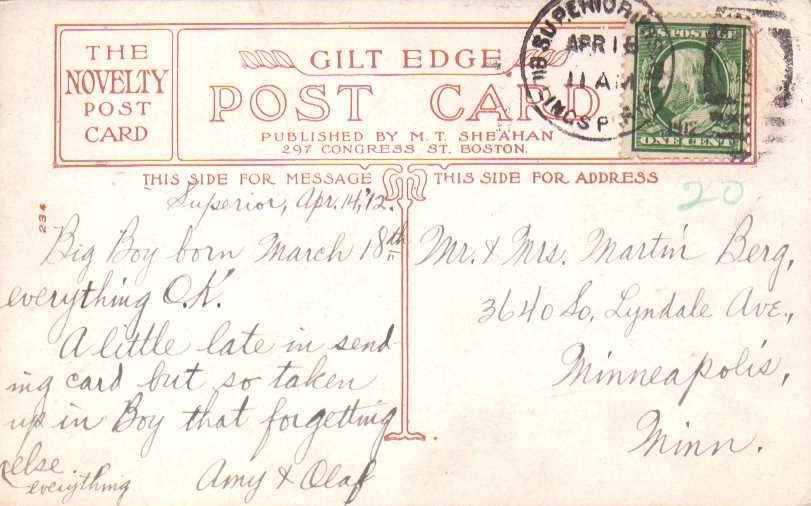 THE
NOVELTY
POST
CARD
GILT EDGE
POST CARD
PUBLISHED BY M. T. SHEAHAN
297 CONGRESS ST. BOSTON.
SUPERIOR
APR 16
11 AM
U.S. POSTAGE
ONE CENT
THIS SIDE FOR MESSAGE
THIS SIDE FOR ADDRESS
20
234
Superior, Apr. 14, '12.
Big Boy born March 18th
everything O.K.
A little late in send-
ing card but so taken
up in Boy that forgetting
else
everything
Amy & Olaf
Mr. & Mrs. Martin Berg,
3640 So. Lyndale Ave.,
Minneapolis,
Minn.